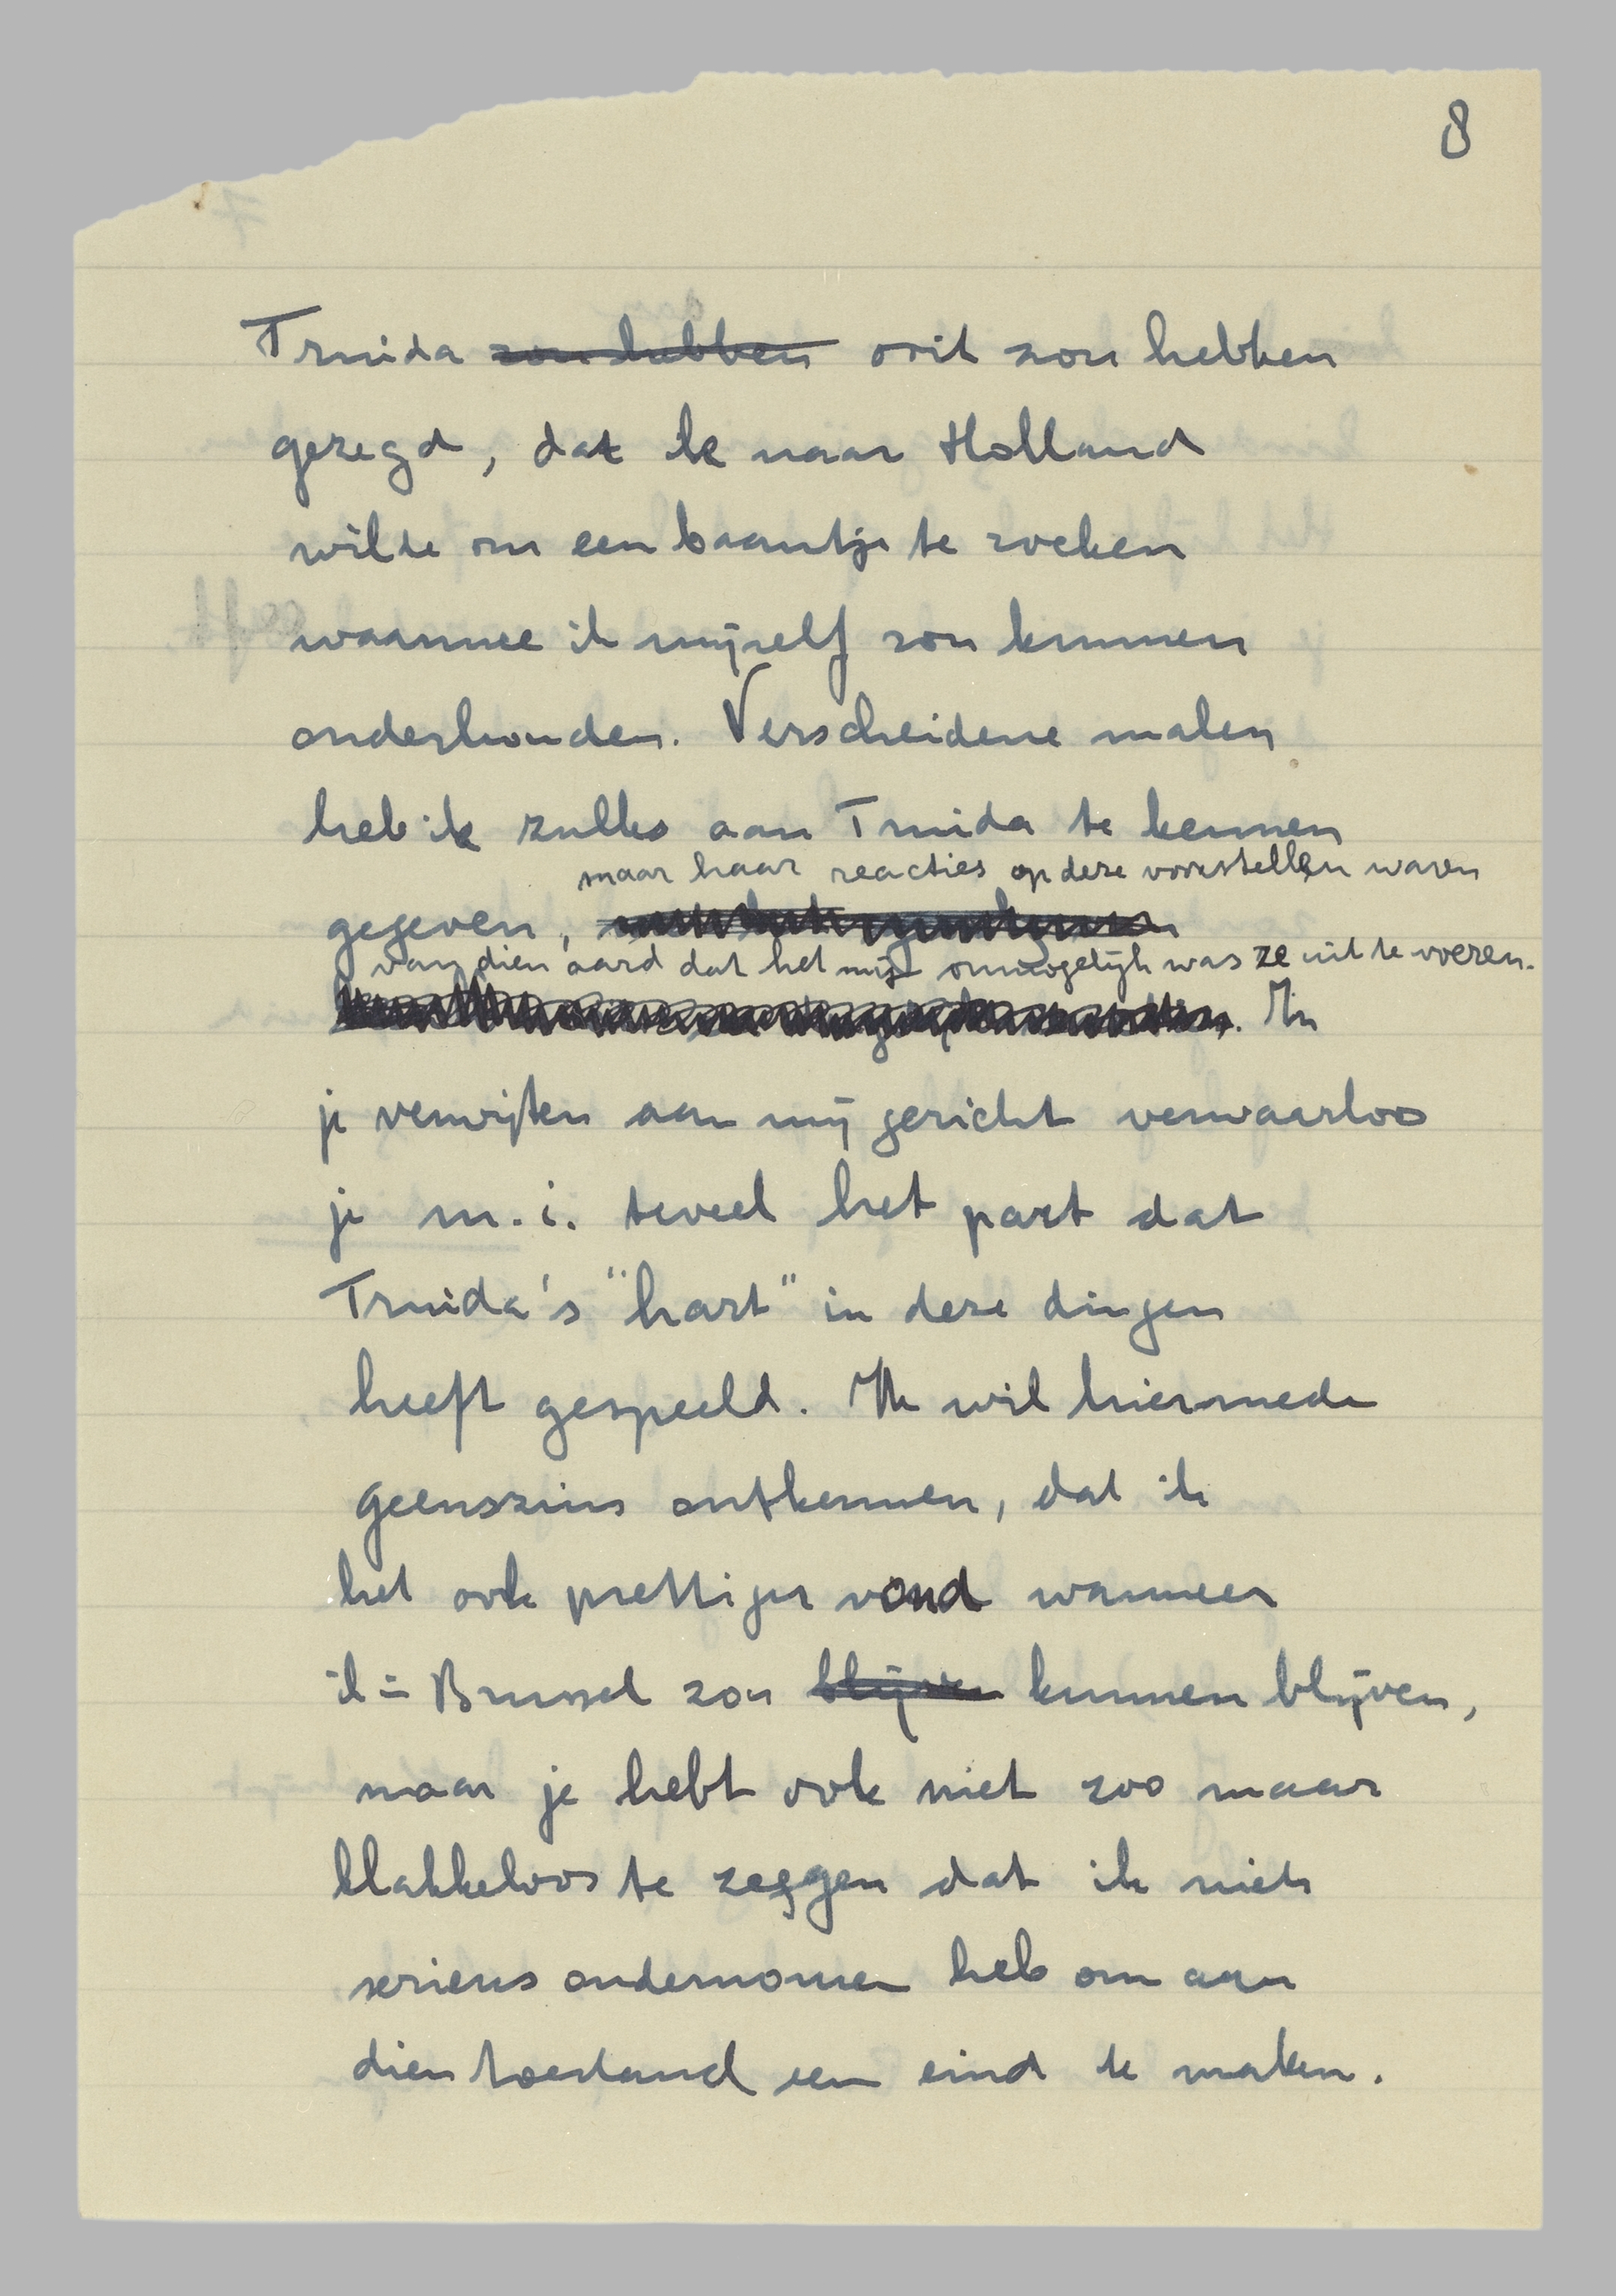 8
Truida zou hebben ooit zou hebben
gezegd, dat ik naar Holland
wilde om een baantje te zoeken
waarmee ik mijzelf zou kunnen
onderhouden. Verscheidene malen
heb ik zulks aan Truida te kennen
maar haar reacties op deze voorstellen waren
gegeven,
van dien aard dat het mij onmogelijk was ze uit te voeren.
. In
je verwijten aan mij gericht verwaarloos
je m.i. teveel het part dat
Truida's "hart" in deze dingen
heeft gespeeld. Ik wil hiermede
geenszins ontkennen, dat ik
het ook prettiger vond wanneer
ik in Brussel zou blijven kunnen blijven,
maar je hebt ook niet zoo maar
klakkeloos te zeggen dat ik niets
serieus ondernomen heb om aan
dien toestand een eind te maken.